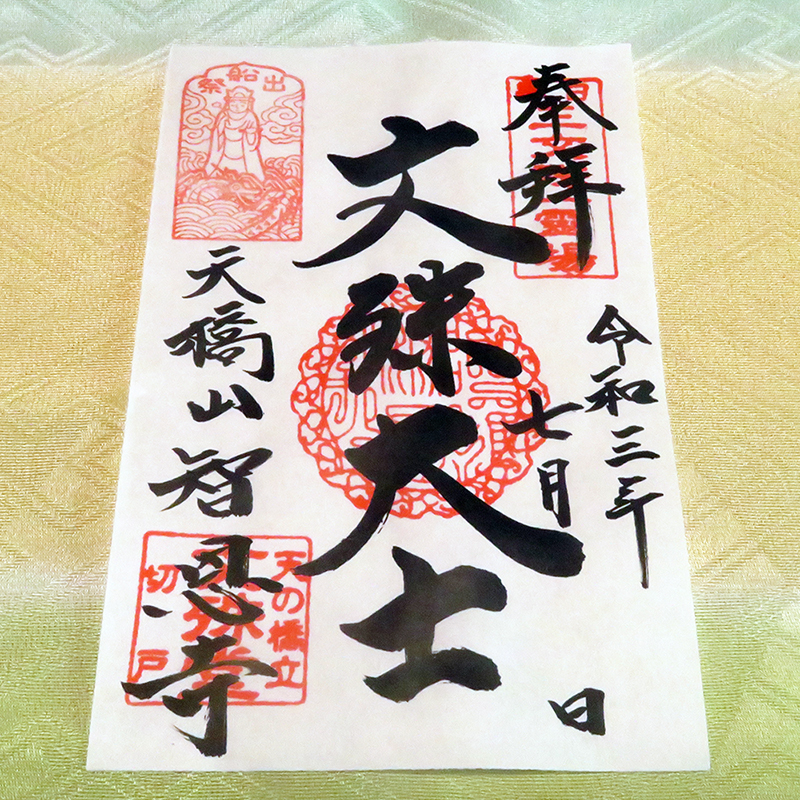 奉拝
令和三年
七月
日
文殊大士
出船祭
天橋山智恩寺
天の橋立
切戸